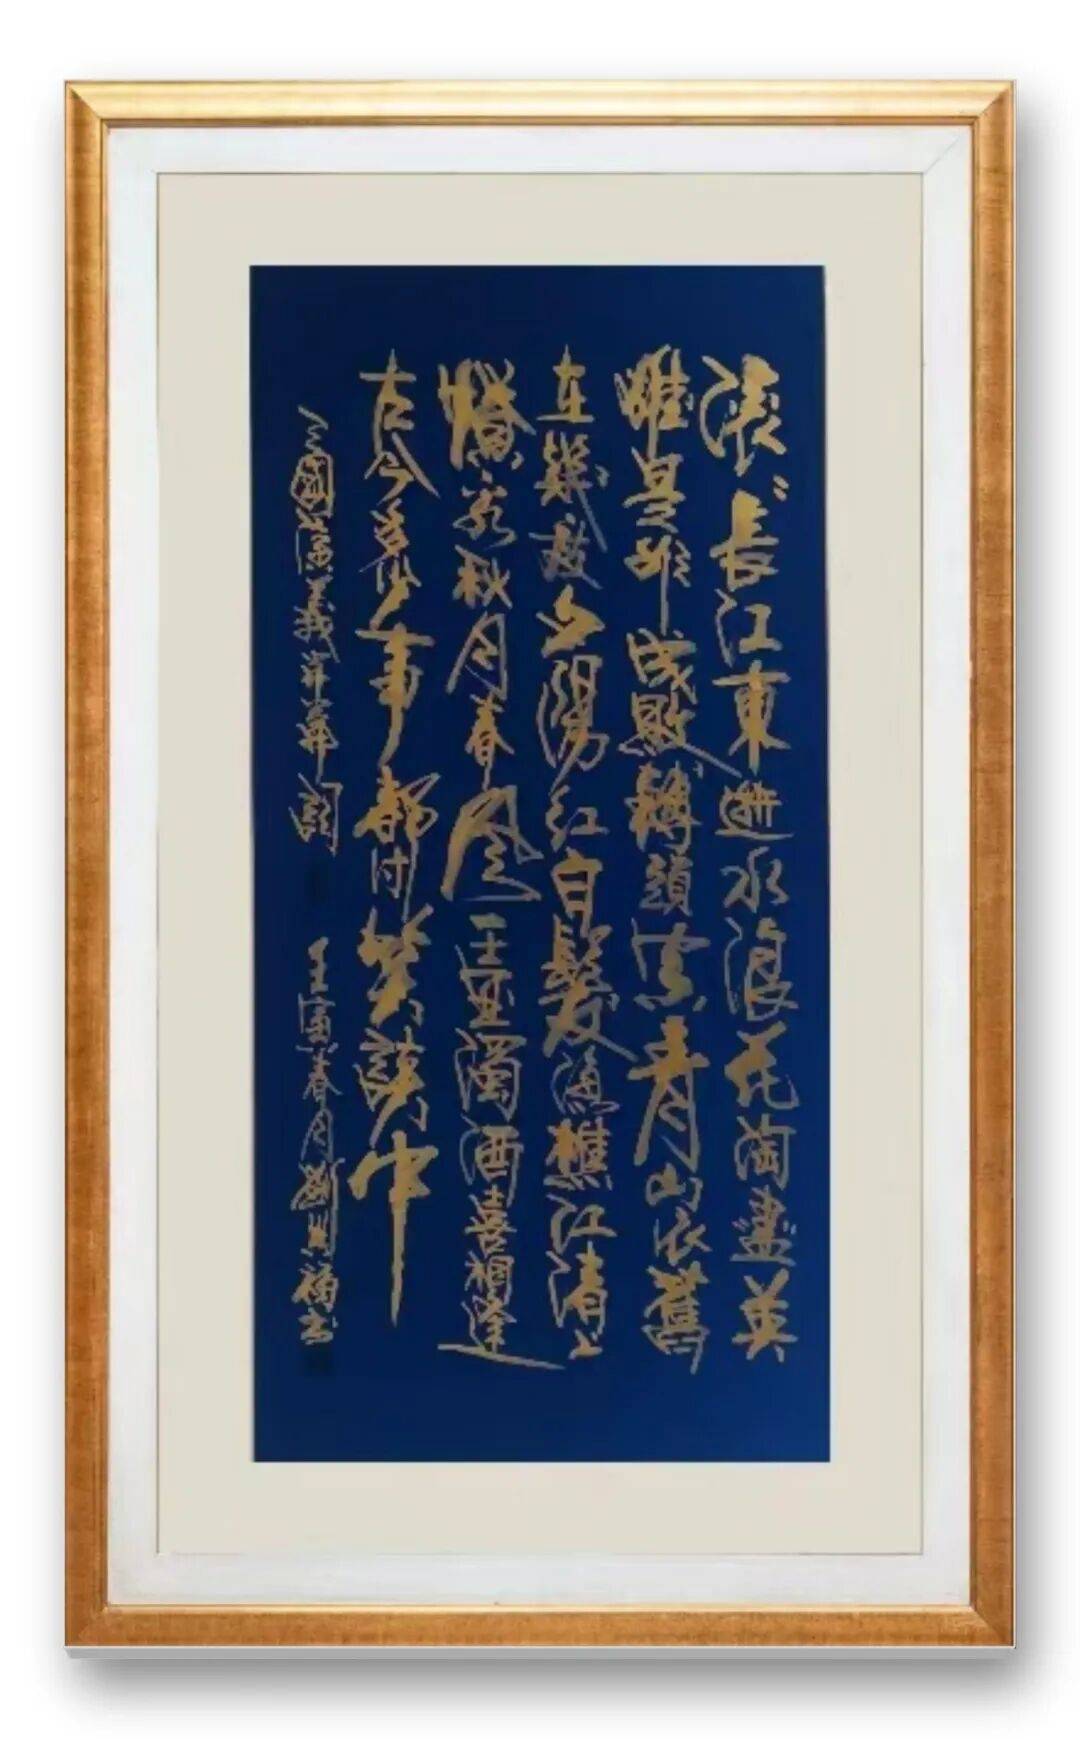 滚〻長江東逝水浪花淘盡英
雄是非成敗轉頭空青山依舊
在幾度夕陽紅白髮漁樵江渚上
慣看秋月春风一壺濁酒喜相逢
古今多少事都付笑談中
三國演義詞 壬寅春月劉福書